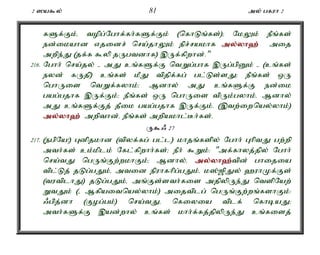 2 ஸயகூல் 81 அல் பகரா 2
களுக்கும், வழிப்போக்கர்களுக்கும் (கொடுங்கள்); மேலும் நீங்கள்
நன்மையான எதனைச் செய்தாலும் நிச்சயமாக அல்லாஹ் அதை
அறிந்து (தக்க கூலி தருபவனாக) இருக்கிறான்."
216. போர் செய்தல் - அது உங்களுக்கு வெறுப்பாக இருப்பினும் - (உங்கள்
நலன் கருதி) உங்கள் மீது விதிக்கப் பட்டுள்ளது; நீங்கள் ஒரு
பொருளை வெறுக்கலாம்; ஆனால் அது உங்களுக்கு நன்மை
பயப்பதாக இருக்கும்; நீங்கள் ஒரு பொருளை விரும்பலாம், ஆனால்
அது உங்களுக்குத் தீமை பயப்பதாக இருக்கும். (இவற்றையெல்லாம்)
அல்லாஹ் அறிவான், நீங்கள் அறியமாட்டீர்கள்.
ருகூஃ 27
217. (நபியே!) புனிதமான (விலக்கப் பட்ட) மாதங்களில் போர் புரிவது பற்றி
அவர்கள் உம்மிடம் கேட்கிறார்கள்; நீர் கூறும்: "அக்காலத்தில் போர்
செய்வது பெருங்குற்றமாகும்; ஆனால், அல்லாஹ்வின் பாதையை
விட்டுத் தடுப்பதும், அவனை நிராகரிப்பதும், மஸ்ஜிதுல் ஹராமுக்குள்
(வரவிடாது) தடுப்பதும், அங்குள்ளவர்களை அதிலிருந்து வெளியேற்
றுவதும் (, ஆகியவையெல்லாம்) அதைவிடப் பெருங்குற்றங்களாகும்;
ஃபித்னா (குழப்பம்) செய்வது, கொலையை விடக் கொடியது;
அவர்களுக்கு இயன்றால் உங்கள் மார்க்கத்திலிருந்து உங்களைத்